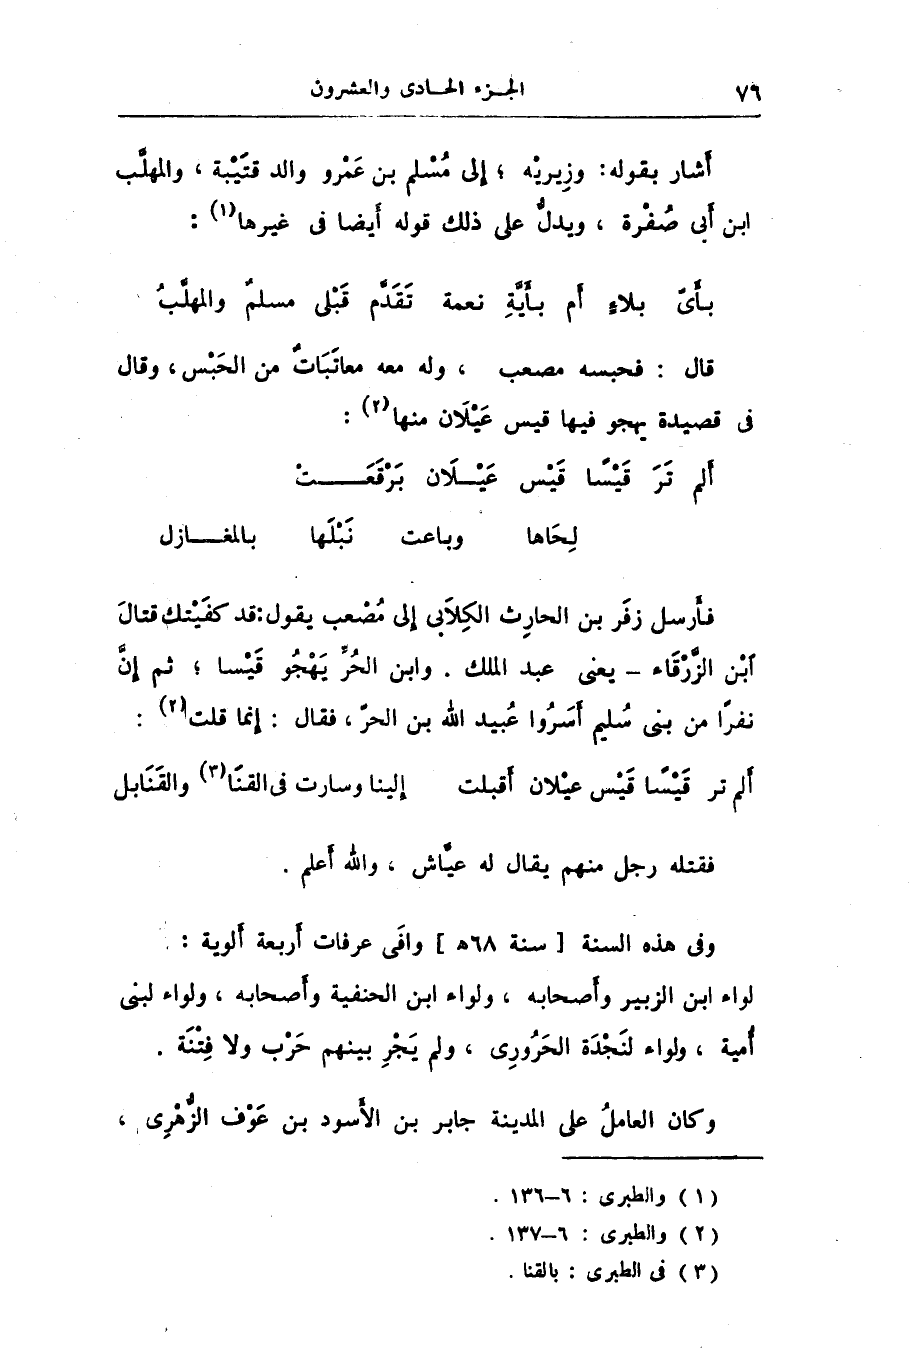 ٧٦ الجزء الحادى والعشرون
أشار بقوله: وزِيريْه ؛ إلى مُسْلم بن عَمْرو والد قتَيْبة ، والمهلَّب
ابن أبى صُفْرة ، ويدلُّ على ذلك قوله أيضا فى غيرها(١) :
بأَىّ بلاءٍ أم بأَيَّةِ نعمة تَقَدَّم قَبْلى مسلمٌ والمهلَّبُ
قال : فحبسه مصعب ، وله معه معاتَبَاتٌ من الحَبْس ، وقال
فى قصيدة يهجو فيها قيس عَيْلَان منها(٢) :
ألم تَرَ قَيْسًا قَيْس عَيْـلَان بَرْقَعَـــتْ
لِحَاها وباعت نَبْلَها بالمغـــازل
فأَرسل زفَر بن الحارِث الكِلاَبى إلى مُصْعب يقول: قد كفَيْتك قتالَ
آبْن الزَّرْقَاء – يعنى عبد الملك . وابن الحُرِّ يَهْجُو قَيْسا ؛ ثم إنَّ
نفرًا من بنى سُليم أَسَرُوا عُبيد الله بن الحرّ ، فقال : إنما قلت(٢) :
ألم تر قَيْسًا قَيْس عيْلان أقبلت إلينا وسارت فى القنَا(٣) والقَنَابل
فقتله رجل منهم يقال له عيَّاش ، والله أعلم .
وفى هذه السنة [ سنة ٦٨ه ] وافَى عرفات أربعة ألوية :
لواء ابن الزبير وأصحابه ، ولواء ابن الحنفية وأصحابه ، ولواء لبنى
أُمية ، ولواء لنَجْدَة الحَرُورِى ، ولم يَجْرِ بينهم حَرْب ولا فِتْنَة .
وكان العاملُ على المدينة جابر بن الأَسود بن عَوْف الزُّهْرِى ،
(١) والطبرى : ٦–١٣٦ .
(٢) والطبرى : ٦–١٣٧ .
(٣) فى الطبرى : بالقنا .